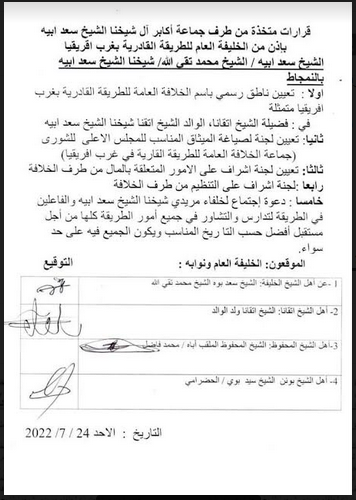 قرارات متخذة من طرف جماعة أكابر آل شيخنا الشيخ سعد ابيه
باذن من الخليفة العام للطريقة القادرية بغرب افريقيا
الشيخ سعد ابيه / الشيخ محمد تقي الله/ شيخنا الشيخ سعد ابيه
بالنمجاط
اولا : تعيين ناطق رسمي باسم الخلافة العامة للطريقة القادرية بغرب
افريقيا متمثلة
في : فضيلة الشيخ اتقانا، الوالد الشيخ اتقنا شيخنا الشيخ سعد ابيه
ثانيا: تعيين لجنة لصياغة الميثاق المناسب للمجلس الاعلى للشورى
(جماعة الخلافة العامة للطريقة القارية في غرب افريقيا)
ثالثا: تعيين لجنة اشراف على الامور المتعلقة بالمال من طرف الخلافة
رابعا: لجنة اشراف على التنظيم من طرف الخلافة
خامسا : دعوة إجتماع لخلفاء مريدي شيخنا الشيخ سعد ابيه والفاعلين
في الطريقة لتدارس والتشاور في جميع أمور الطريقة كلها من أجل
مستقبل أفضل حسب التا ريخ المناسب ويكون الجميع فيه على حد
سواء.
الموقعون: الخليفة العام ونوابه : التوقيع
1 -عن اهل الشيخ الخليفة: الشيخ سعد بوه الشيخ محمد تقي الله
2- أهل الشيخ اتقانا: الشيخ اتقانا ولد الوالد
3-أهل الشيخ المحفوظ: الشيخ المحفوظ الملقب أباه / محمد فاضل
4- أهل الشيخ بونن الشيخ سيد بوي / الحضرامي
التاريخ : الاحد 24 / 7/ 2022